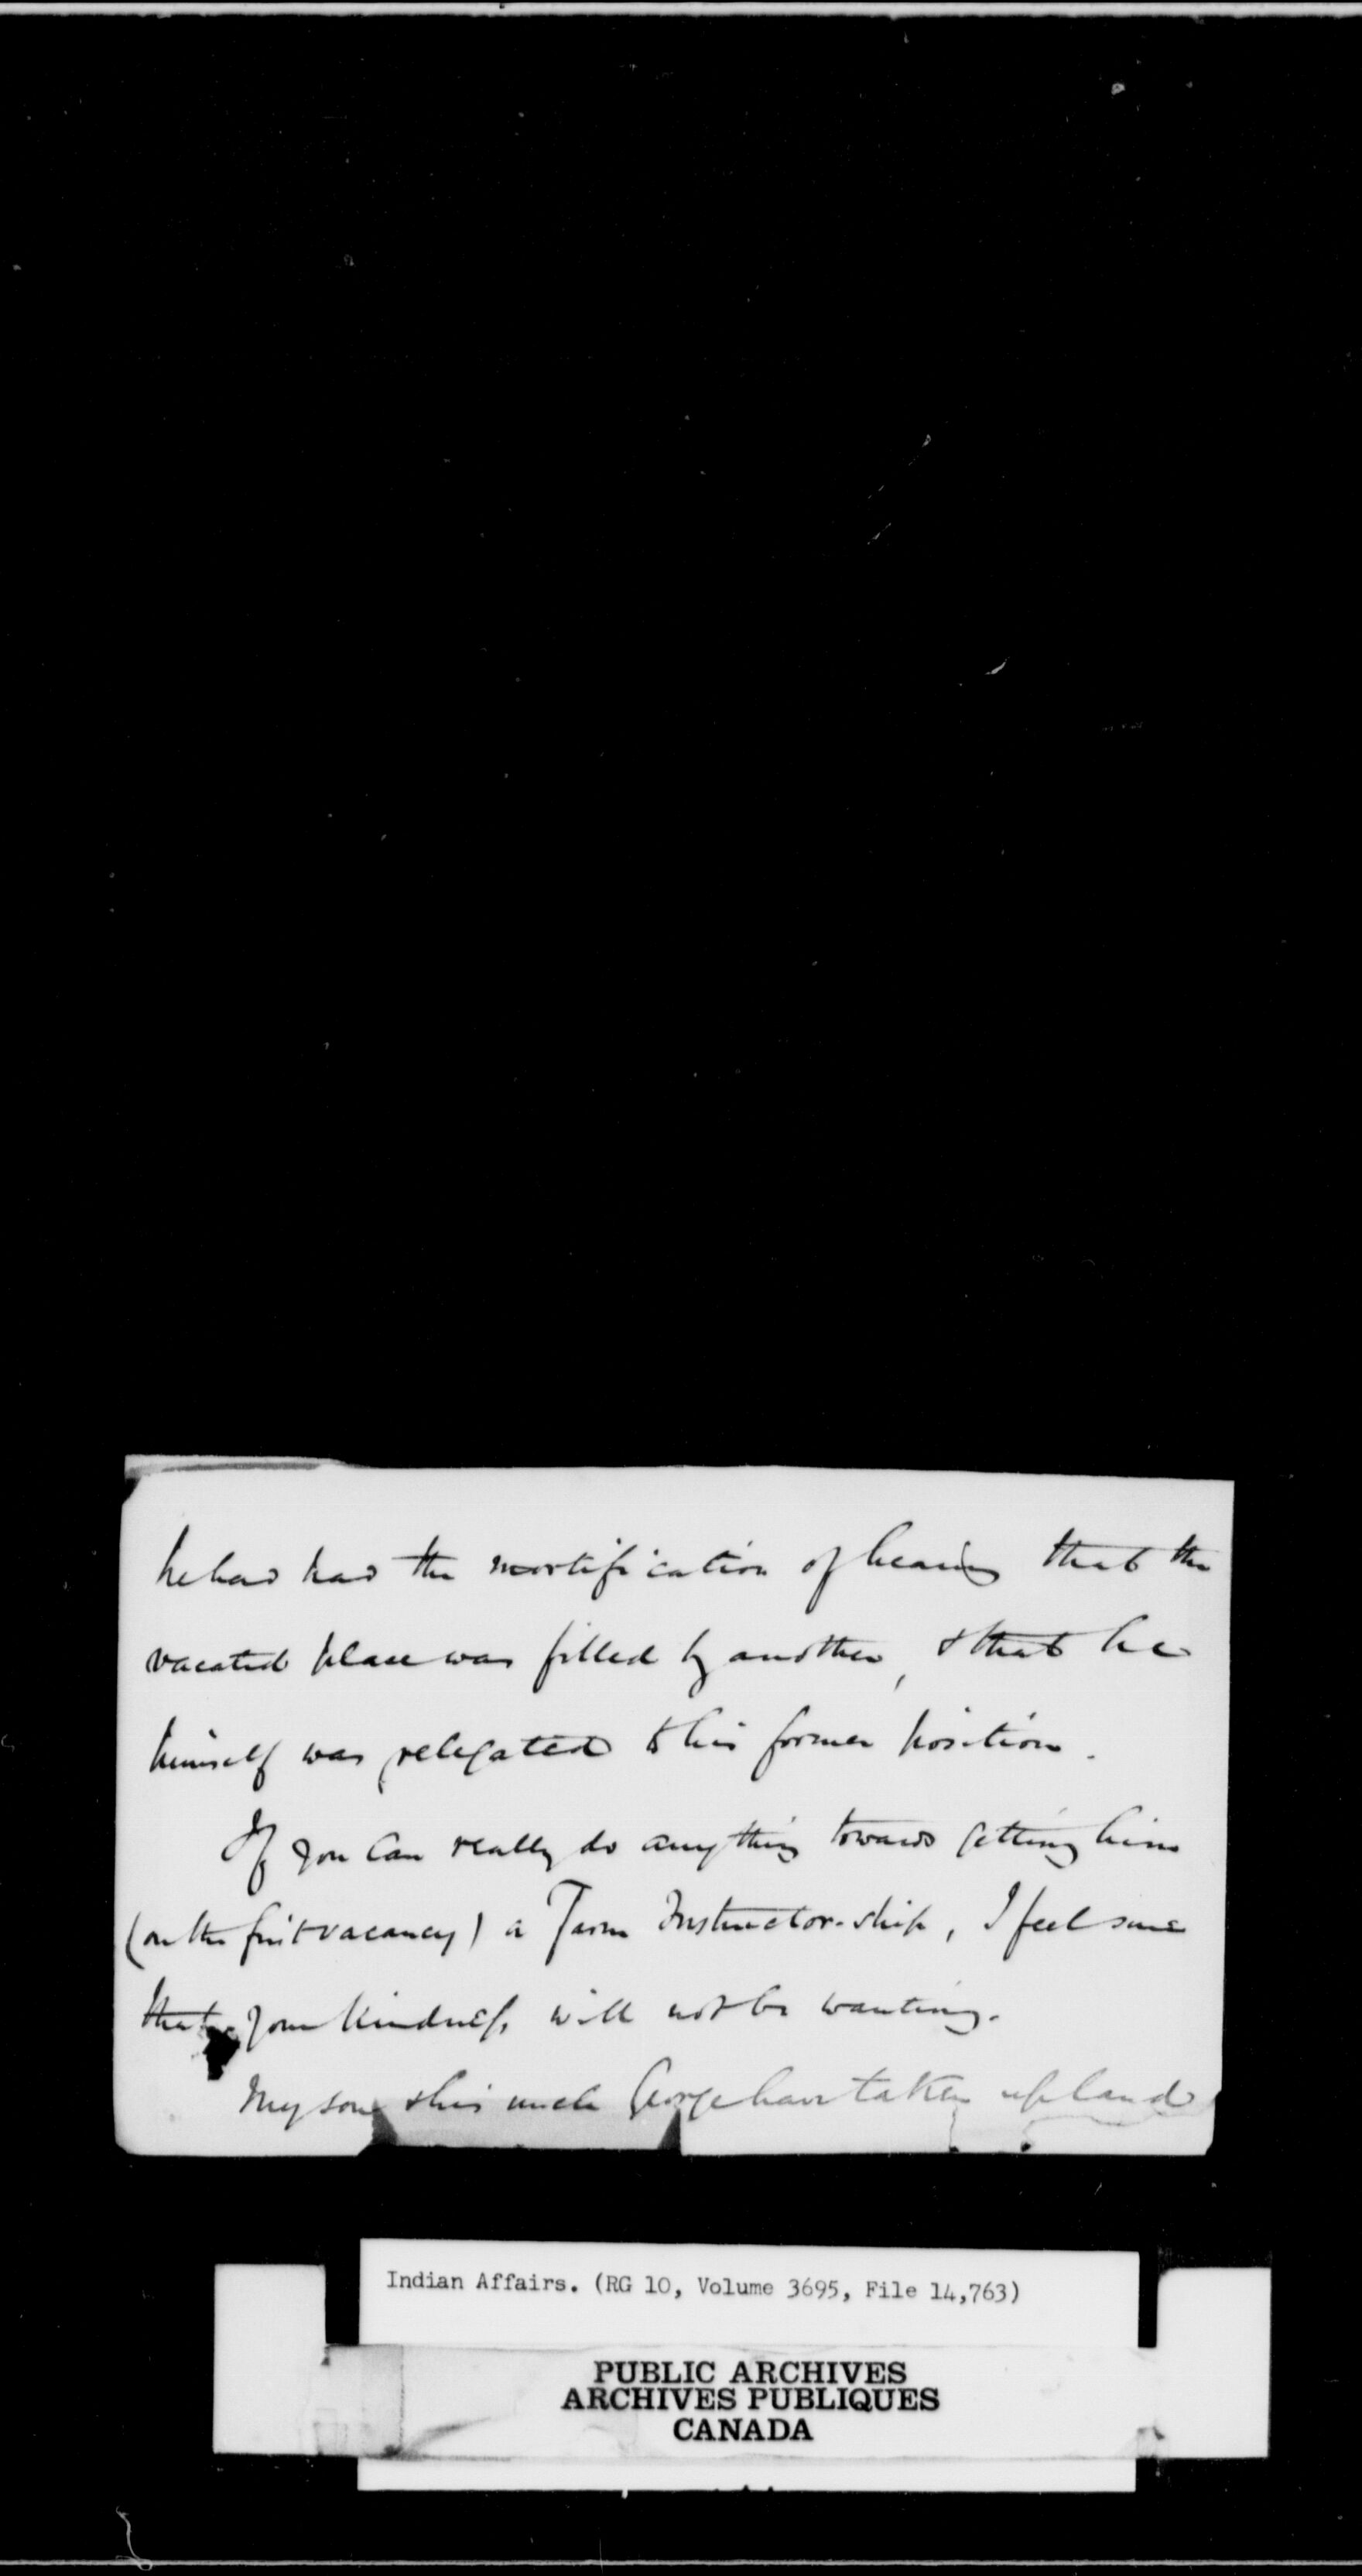 he has had the mortification of hearing that the
vacated place was filled by another, & that he
himself was relegated to his former position.
If you can really do anything towards getting him
(on the first vacancy) a Farm Instructor-ship, I feel sure
that your kindness, will not be wanting.
My son & his uncle George have taken up land
Indian Affairs. (RG 10, Volume 3695, File 14,763)
PUBLIC ARCHIVES
ARCHIVES PUBLIQUES
CANADA